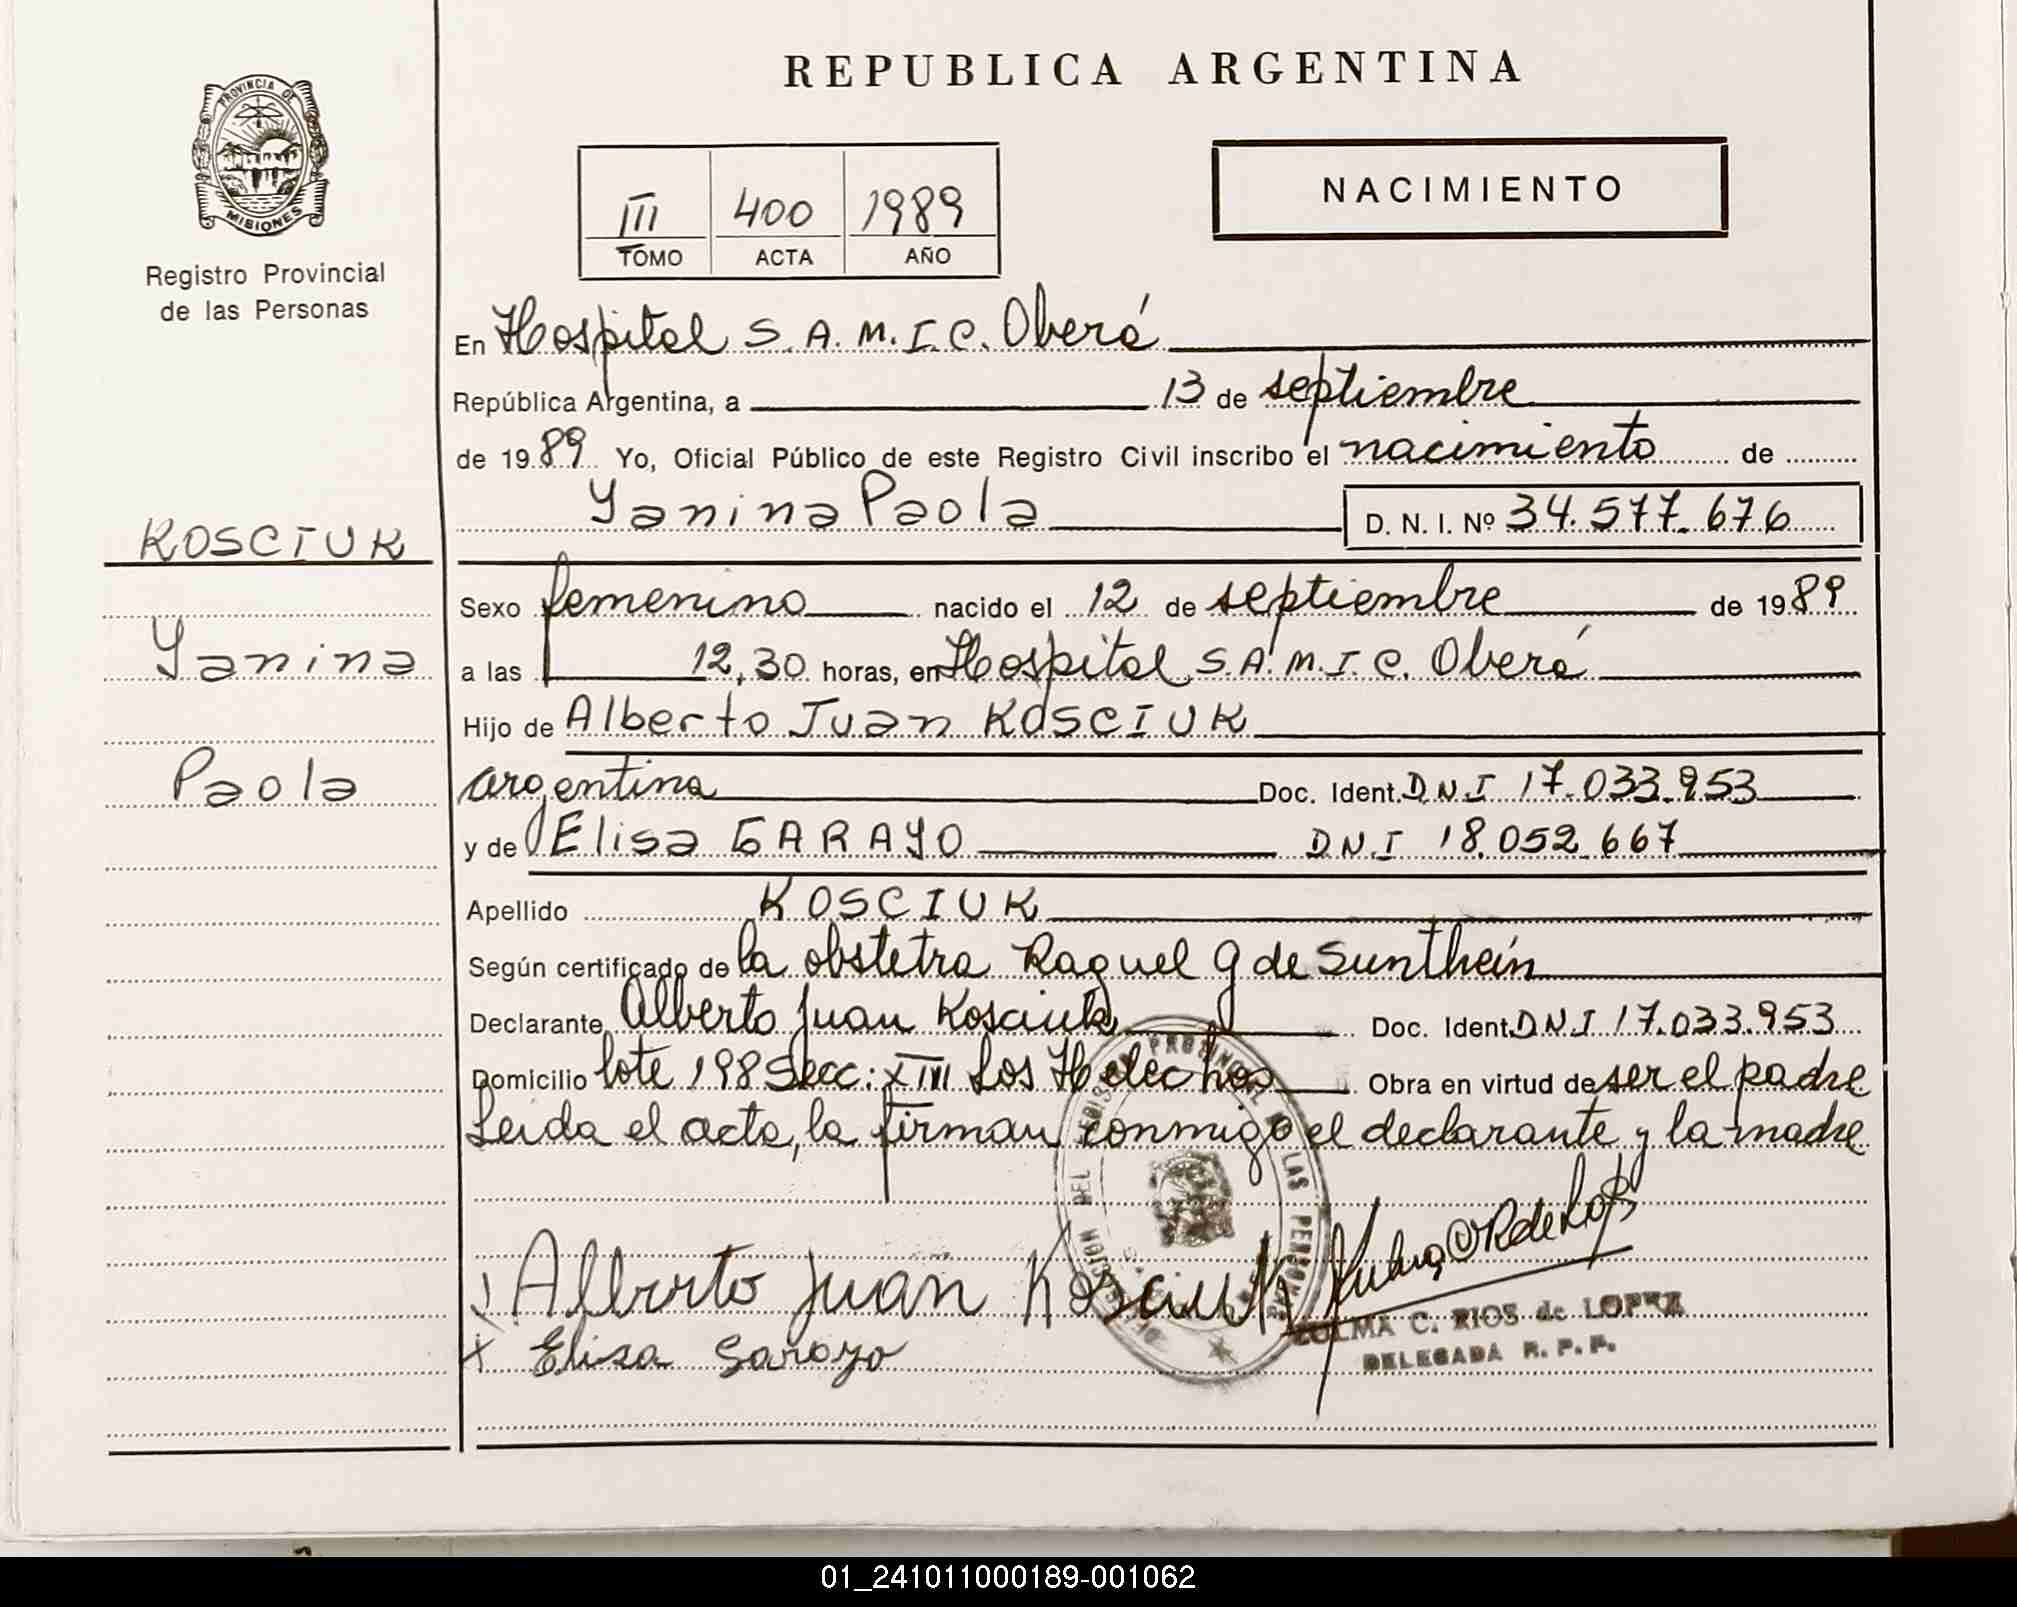 REPUBLICA ARGENTINA
PROVINCIA DE
MISIONES
Registro Provincial
de las Personas
III 400 1989
TOMO ACTA AÑO
NACIMIENTO
En Hospital S.A.M.I.C. Oberá
República Argentina, a 13 de septiembre
de 1989 Yo, Oficial Público de este Registro Civil inscribo el nacimiento de
Yanina Paola D. N. I. Nº 34.577.676
KOSCIUK
Yanina
Paola
Sexo femenino nacido el 12 de septiembre de 1989
a las 12,30 horas, en Hospital S.A.M.I.C. Oberá
Hijo de Alberto Juan KOSCIUK
argentina Doc. Ident. DNI 17.033.953
y de Elisa GARAYO DNI 18.052.667
Apellido KOSCIUK
Según certificado de la obstetra Raquel G de Sunthein
Declarante Alberto Juan Kosciuk Doc. Ident. DNI 17.033.953
Domicilio lote 198 Secc: XIII Los Helechos Obra en virtud de ser el padre
Leída el acta, la firman conmigo el declarante y la madre
Alberto Juan Kosciuk
Elisa Garayo
ZULMA C. RIOS de LOPEZ
DELEGADA R. P. P.
01_241011000189-001062